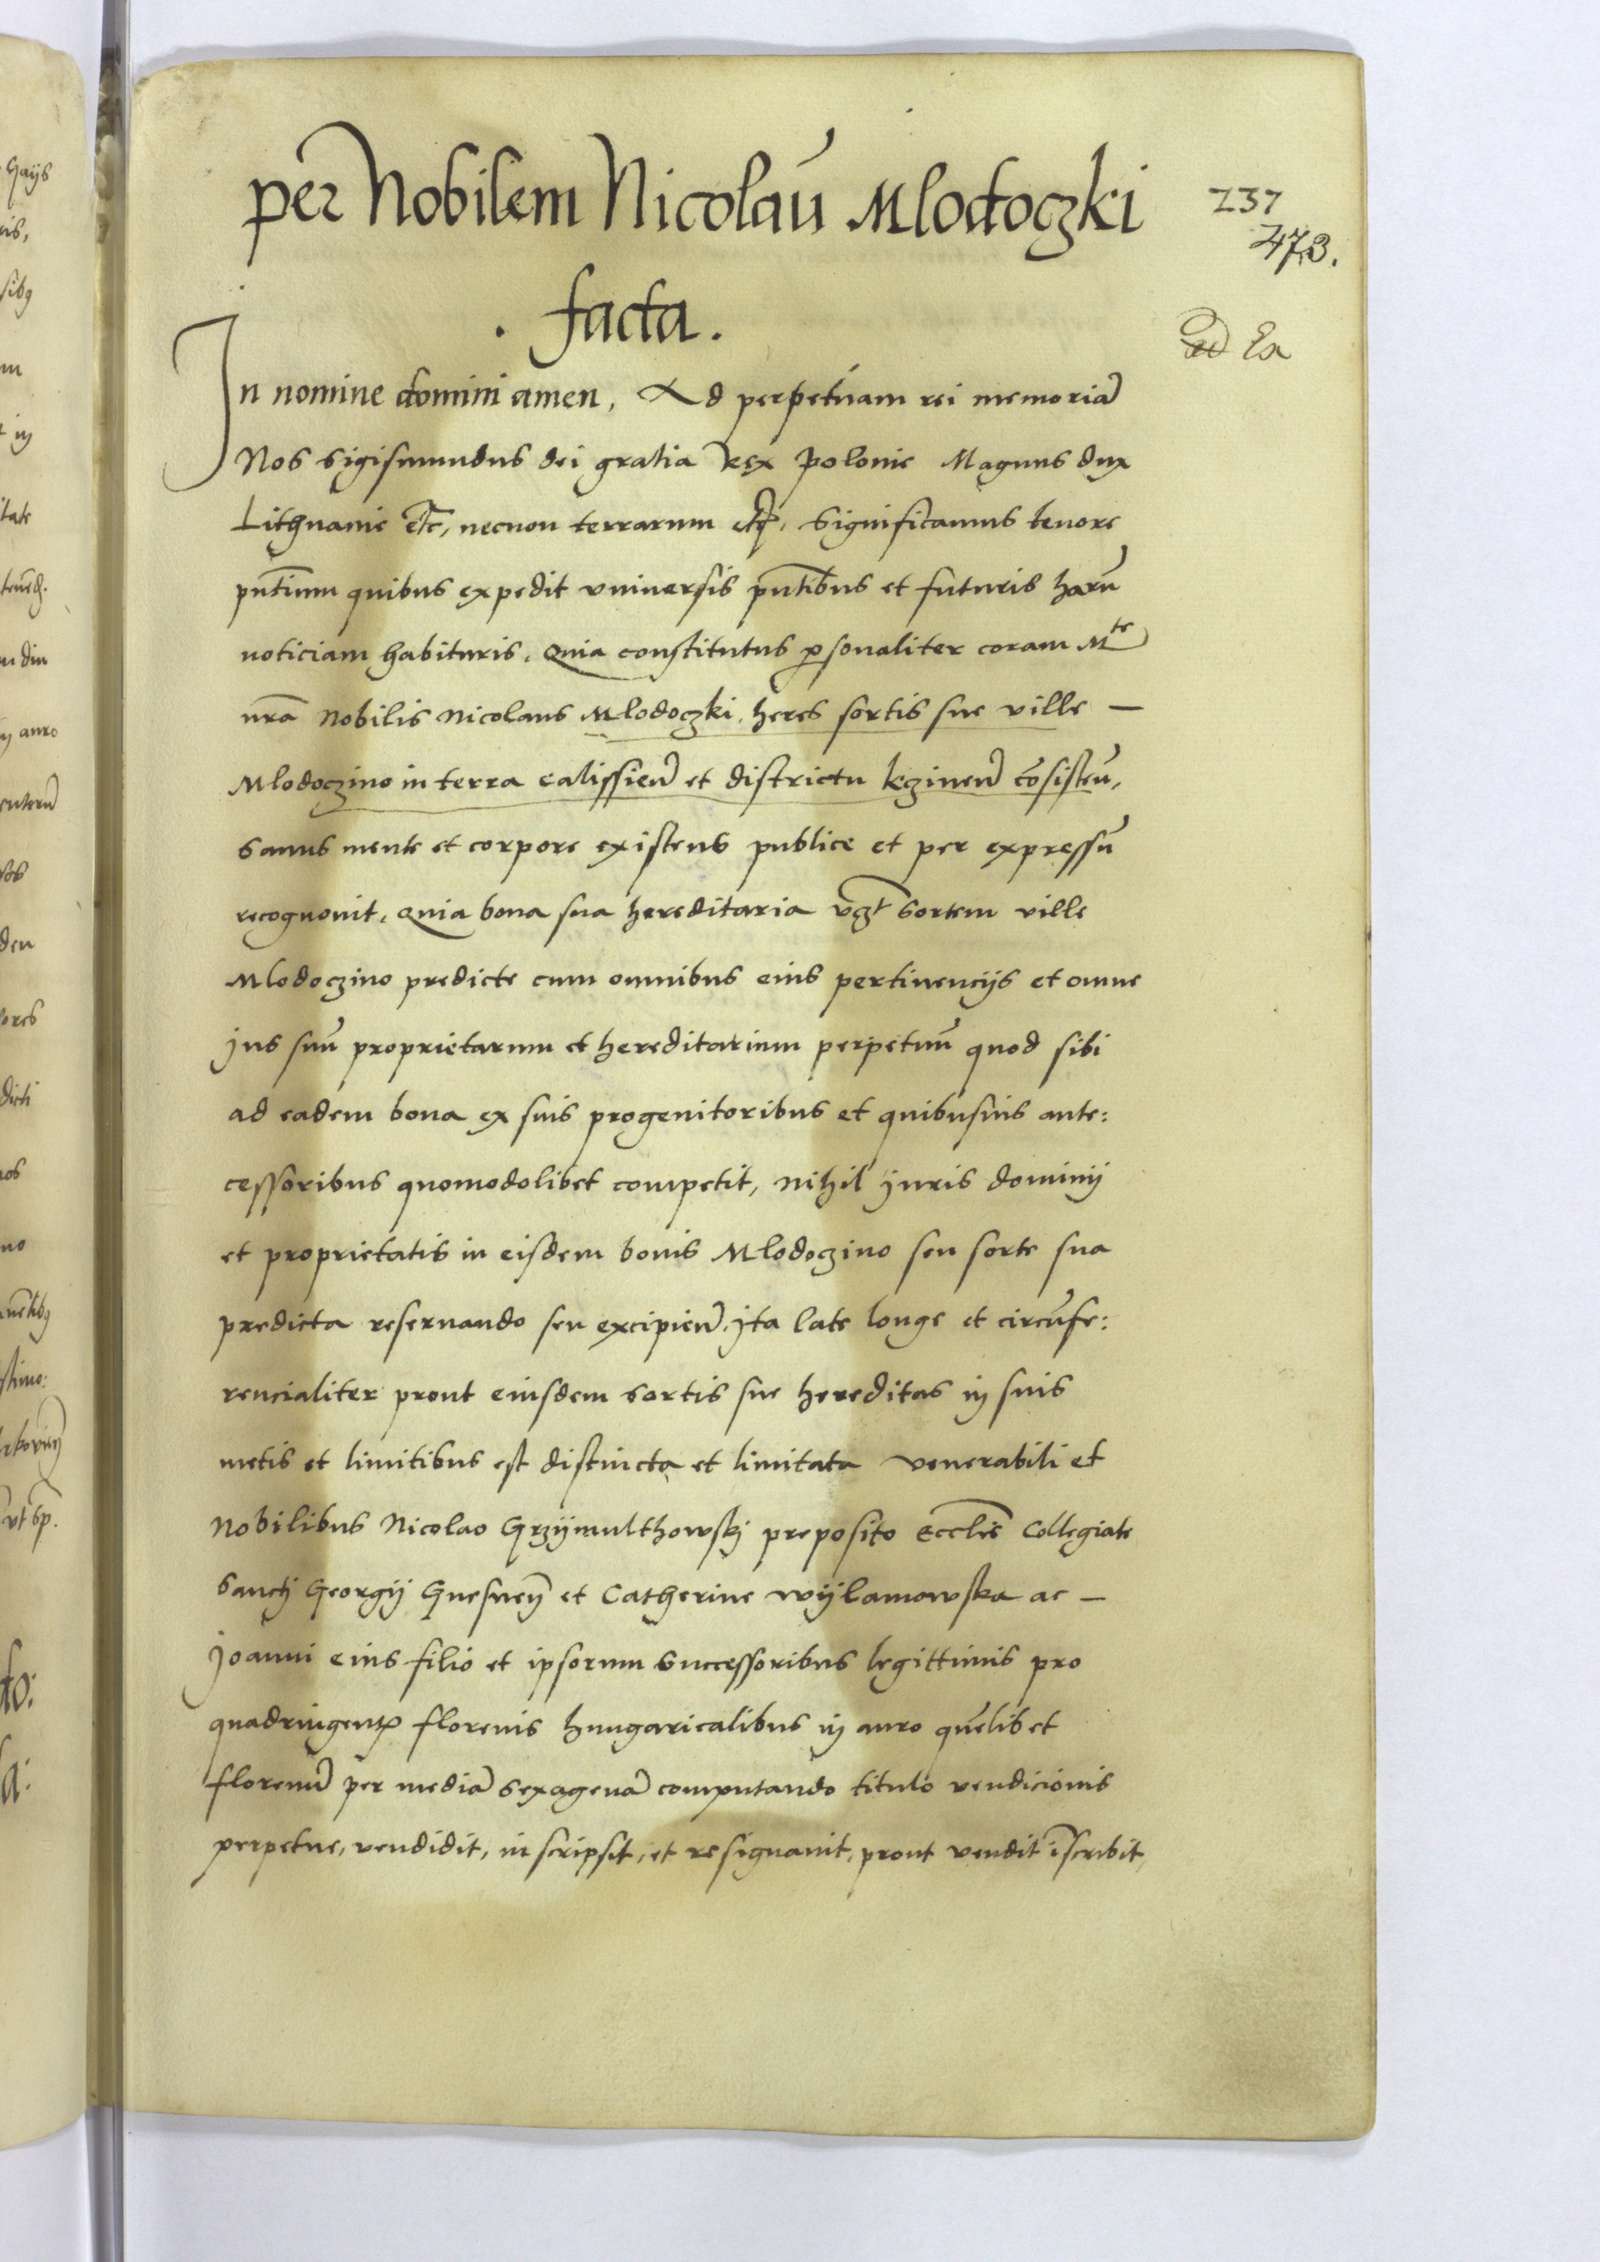 per Nobilem Nicolaū Mlodoczki
237
473.
. facta .
Ea
In nomine domini amen, Ad perpetuam rei memoriā
Nos Sigismundus dei gratia Rex Polonie Magnus dux
Lithuanie etc, necnon terrarum etc, Significamus tenore
pn̄tium quibus expedit vniuersis pn̄tibus et futuris harū
noticiam habituris, Quia constitutus personaliter coram Mte
nrā Nobilis Nicolaus Mlodoczki heres sortis sue ville —
Mlodoczino in terra calissien̄ et districtu kczinen̄ cōsisteñ,
sanus mente et corpore existens publice et per expressū
recognouit, Quia bona sua hereditaria vz̄ Sortem ville
Mlodoczino predicte cum omnibus eius pertinencijs et omne
jus suū proprietarium et hereditarium perpetuū quod sibi
ad eadem bona ex suis progenitoribus et quibusuis ante:
cessoribus quomodolibet competit, Nihil juris dominij
et proprietatis in eisdem bonis Mlodoczino seu sorte sua
predicta reseruando seu excipien̄, jta late longe et circūfe:
rencialiter prout eiusdem sortis sue hereditas in suis
metis et limitibus est distincta et limitata venerabili et
Nobilibus Nicolao Grzijmulthowskj preposito Eccl̄ie Collegiate
Sanctj Georgij Gnesnen̄ et Catherine Wijlamowska ac —
Joanni eius filio et ipsorum Successoribus legittimis pro
quadringentis florenis hungaricalibus in auro quēlibet
florenū per mediā sexagenā computando titulo vendicionis
perpetue, vendidit, inscripsit, et resignauit, prout vendit īscribit,